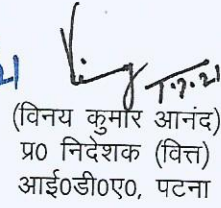 (विनय कुमार आनंद)
प्र० निदेशक (वित्त)
आई०डी०ए०, पटना